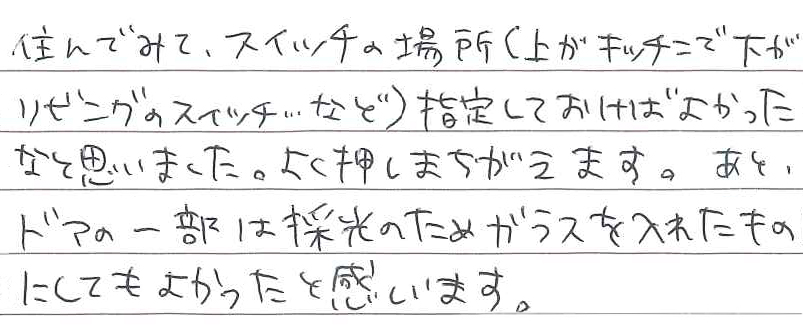 住んでみて、スイッチの場所(上がキッチンで下が
リビングのスイッチ…など)指定しておけばよかった
なと思いました。よく押しまちがえます。あと、
ドアの一部は採光のためガラスを入れたもの
にしてもよかったと感じいます。